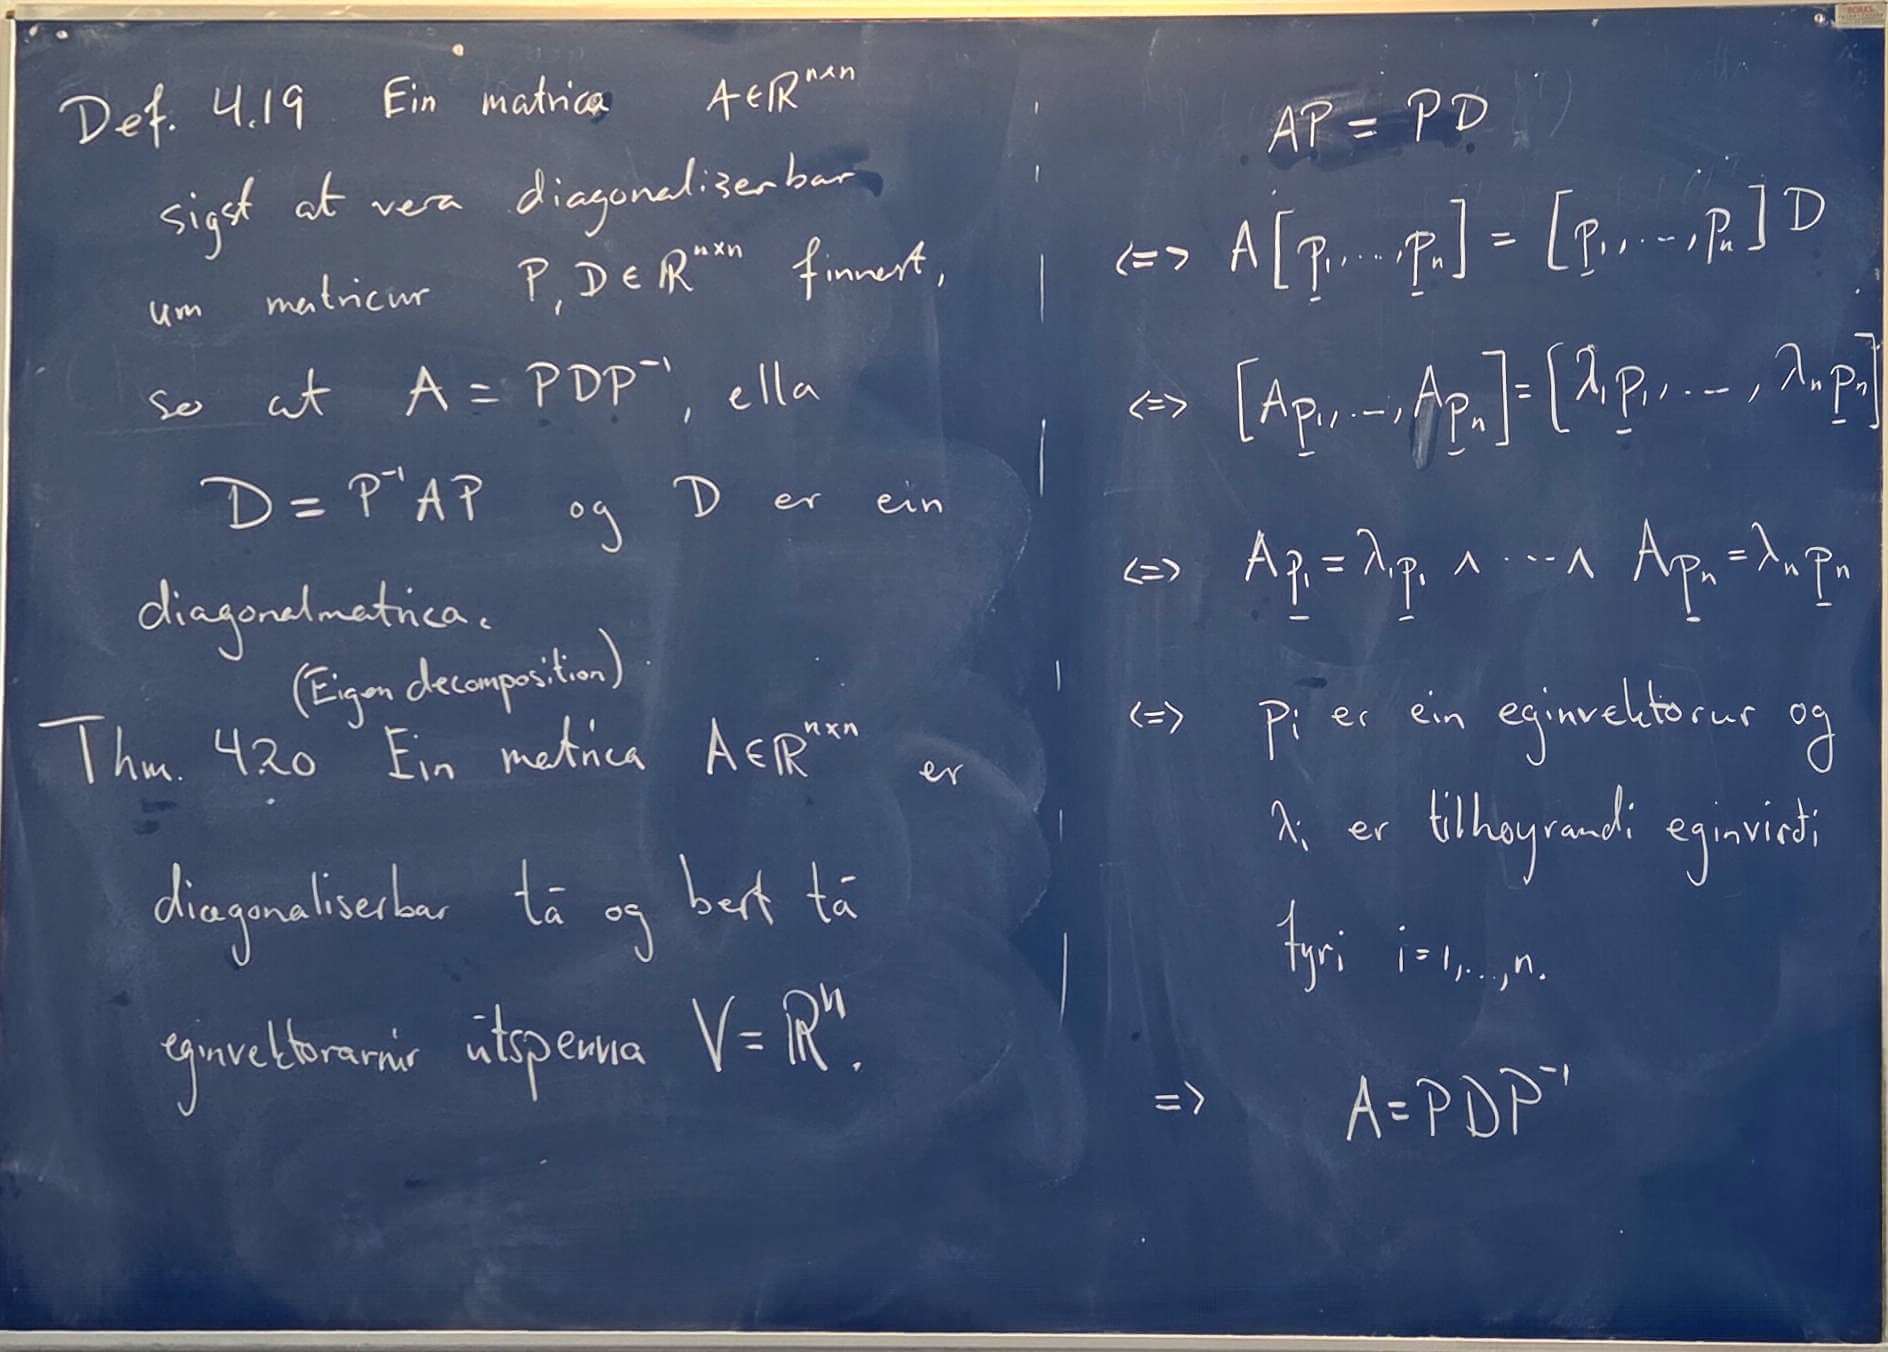 Def. 4.19 Ein matrica A∈ℝⁿˣⁿ
sigst at vera diagonaliserbar
um matricur P, D ∈ ℝⁿˣⁿ finnast,
so at A = PDP⁻¹, ella
D = P⁻¹AP og D er ein
diagonalmatrica.
(Eigen decomposition)
Thm. 4.20 Ein matrica A∈ℝⁿˣⁿ er
diagonaliserbar tá og bert tá
eginvektorarnir útspenna V = ℝⁿ.
AP = PD
<=> A[p̲₁,...,p̲ₙ] = [p̲₁,...,p̲ₙ]D
<=> [Ap̲₁,...,Ap̲ₙ] = [λ₁p̲₁,...,λₙp̲ₙ]
<=> Ap̲₁ = λ₁p̲₁ ∧ ... ∧ Ap̲ₙ = λₙp̲ₙ
<=> pᵢ er ein eginvektorur og
λᵢ er tilhoyrandi eginvirði
fyri i=1,...,n.
=> A = PDP⁻¹